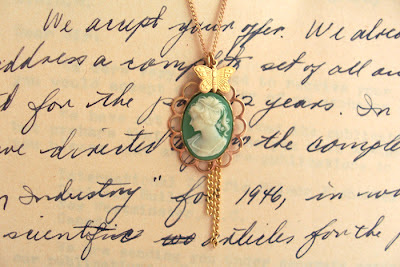 We accept your offer. We alrea
address a complete set of all ou
d for the pa 's years. In
ve directed the comple
n Industry" for 1946, in wh
scientific articles for the p